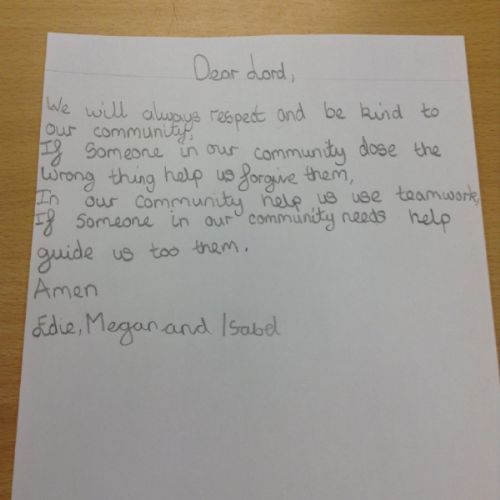 Dear Lord,
We will always respect and be kind to
our community,
If Someone in our community dose the
wrong thing help us forgive them,
In our community help us use teamwork,
If someone in our community needs help
guide us too them.
Amen
Edie, Megan and Isabel